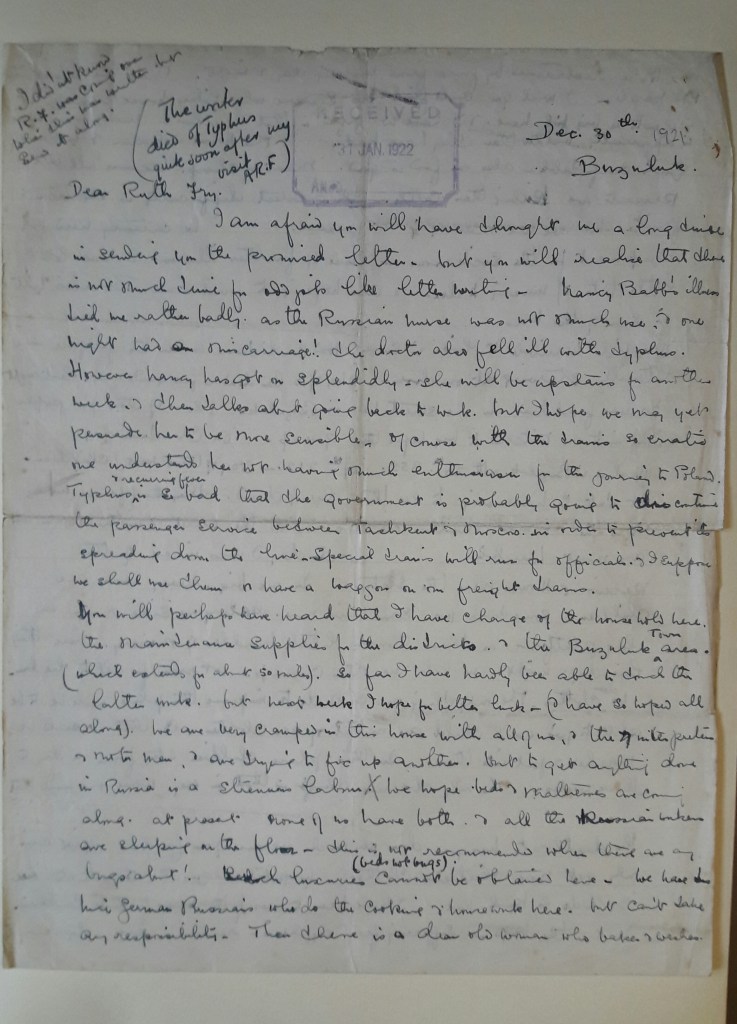 I didn't know
R.F. was coming when
this was written but
send it along.
(The writer
died of Typhus
quite soon after my
visit A.R.F)
RECEIVED
31 JAN. 1922
ANS
Dec. 30th 1921
Buzuluk.
Dear Ruth Fry.
I am afraid you will have thought me a long time
in sending you the promised letter - but you will realise that there
is not much time for odd jobs like letter writing - Nancy Babb's illness
tied me rather badly. as the Russian nurse was not much use, & one
night had a miscarriage! the doctor also fell ill with typhus.
However Nancy has got on splendidly - she will be upstairs for another
week. & then talks about going back to work. but I hope we may yet
persuade her to be more sensible - of course with the trains so erratic
one understands her not having much enthusiasm for the journey to Poland.
Typhus & recurring fever is so bad that the government is probably going to discontinue
the passenger service between Tashkent & Moscow in order to prevent its
spreading down the line - Special trains will run for officials. & I suppose
we shall use them or have a waggon on our freight trains.
You will perhaps have heard that I have charge of the household here.
the maintenance supplies for the districts. & the Buzuluk Town area.
(which extends for about 50 miles). So far I have hardly been able to touch the
latter work. but next week I hope for better luck - (I have so hoped all
along). We are very cramped in this house with all of us, & the interpreters
& motor men, & are trying to fix up another. but to get anything done
in Russia is a strenuous labour. We hope beds & mattresses are coming
along. at present none of us have both. & all the Russian workers
are sleeping on the floor - this is not recommended when there are any
bugs about! Such luxuries (beds not bugs) cannot be obtained here - We have two
nice German Russians who do the cooking & housework here. but can't take
any responsibility - Then there is a dear old woman who bakes & washes.